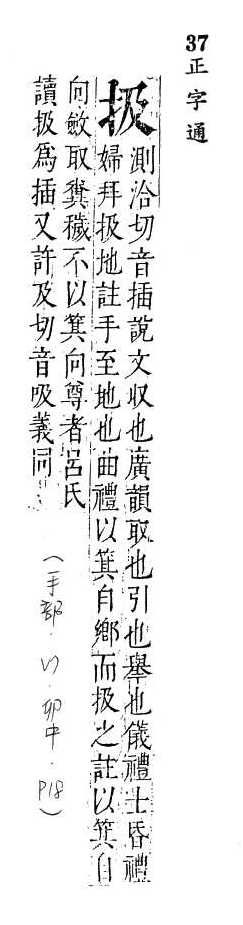 37正字通
扱
測洽切音插說文収也廣韻取也引也舉也儀禮士昏禮
婦拜扱地註手至地也曲禮以箕自鄉而扱之註以箕自
向斂取糞穢不以箕向尊者呂氏
讀扱為插又許及切音吸義同
(手部·卯中·P18)